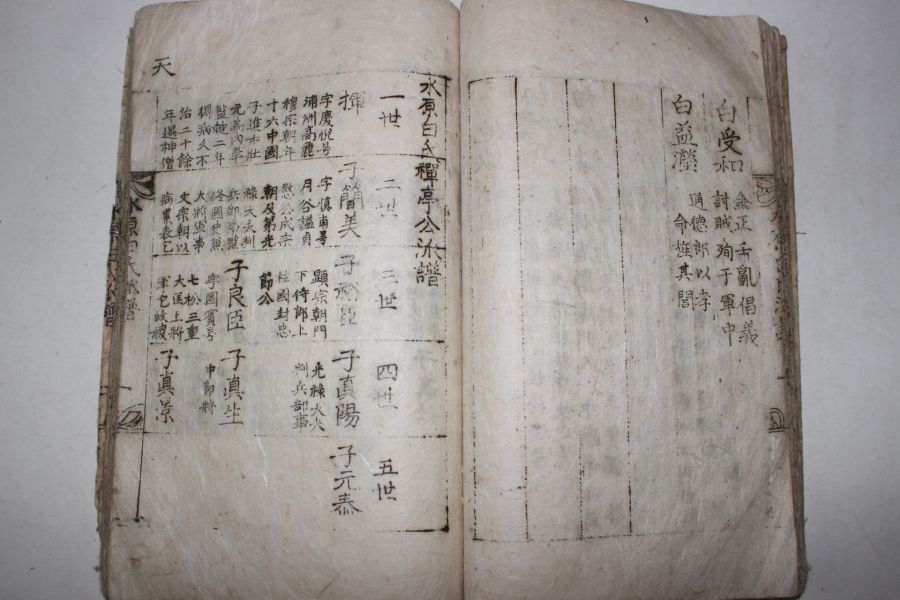 白受和
僉正壬亂倡義
討賊殉于軍中
白益瀅
通德郎以孝
命旌其閭
水原白氏禪亭公派譜
一世
揮
字慶悅号
浦洲高麗
穆宗朝年
十六中國
子進士壯
元
二年
獨病久不
治二十餘
年遇神僧
二世
子簡美
字慎甫号
月谷謚貞
愍公成宗
朝及第光
祿大夫判
兵部
大將軍事
文宗朝以
病棄表乞
三世
子臣
顯宗朝門
下侍郎上
柱國封忠
節公
子良臣
字國賓号
七松三重
大匡上將
軍乞故
四世
子真陽
光祿大夫
判兵部事
子真生
中郎將
子真景
五世
子元泰
天